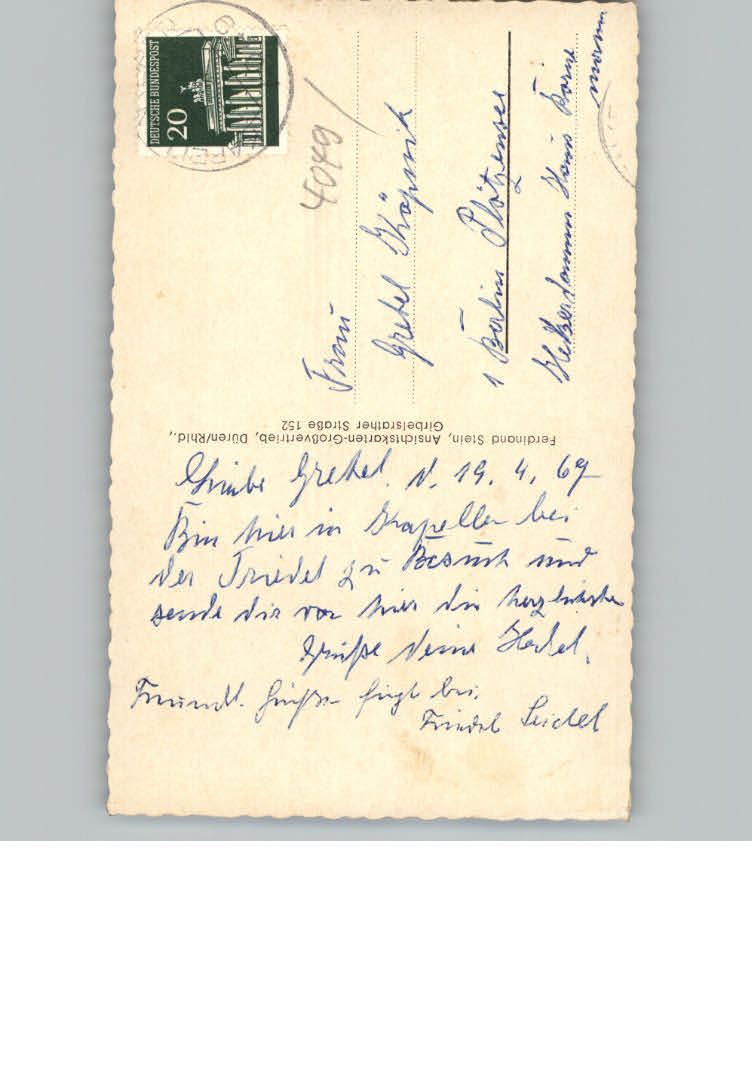 DEUTSCHE BUNDESPOST
20
4049
Frau
Gretel Köpnik
1 Berlin Plötzensee
Heckerdamm Haus
Ferdinand Stein, Ansichtskarten-Großvertrieb, Düren/Rhld.,
Girbelsrather Straße 152
Liebe Gretel. d. 19. 4. 69
Bin hier in Kapellen bei
der Friedel zu Besuch und
sende dir von hier die herzlichsten
Grüße deine Hedel.
Freundl. Grüße fügt bei.
Friedel Seidel